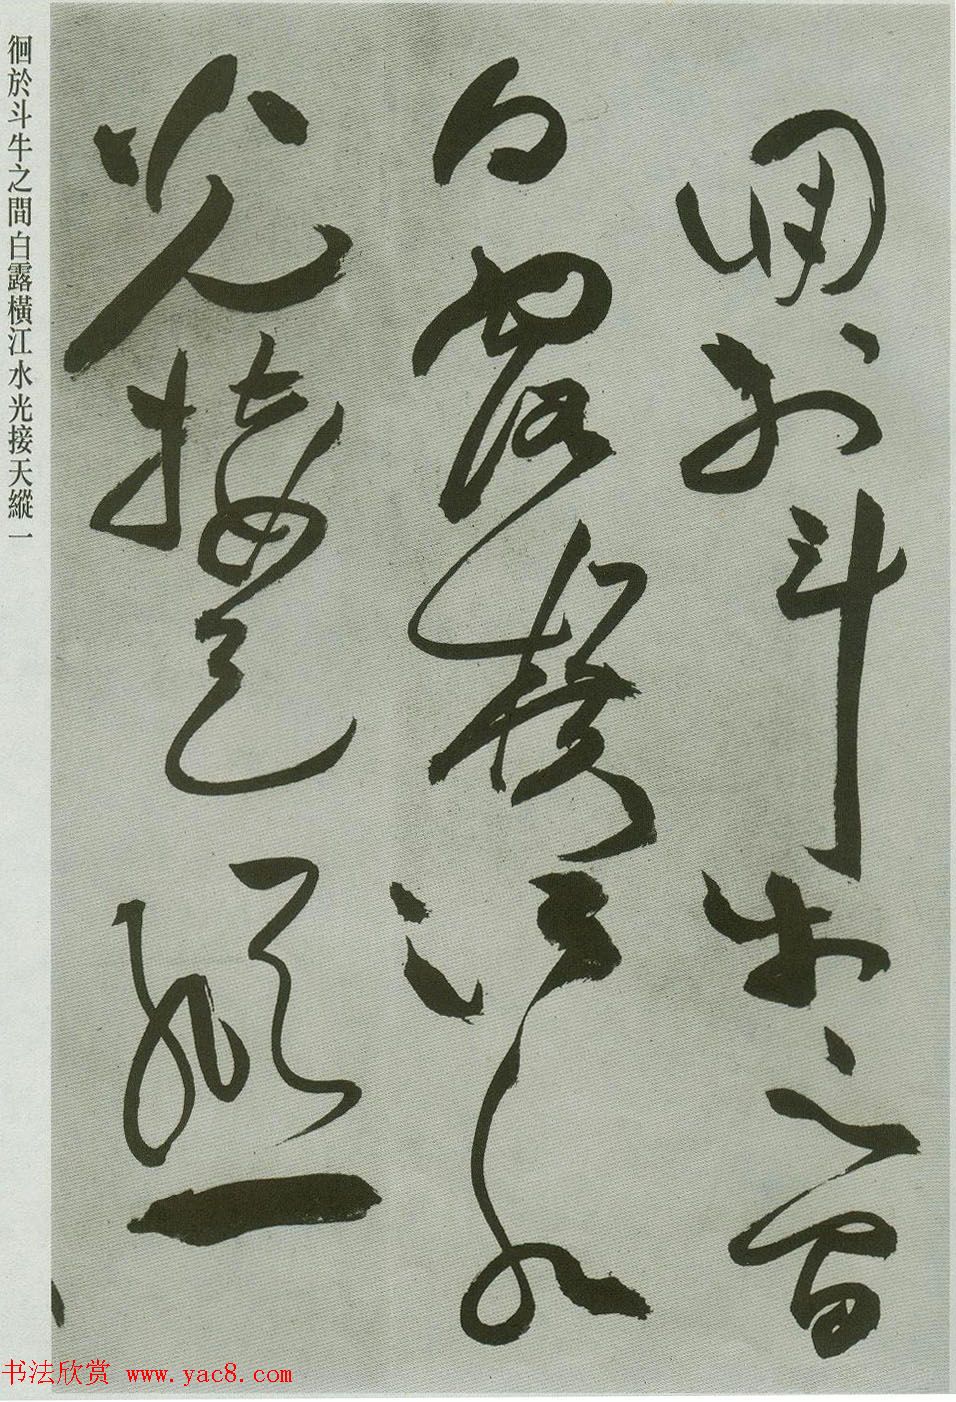 徊於斗牛之間
白露橫江水
光接天縱一
徊於斗牛之間白露橫江水光接天縱一
书法欣赏 www.yac8.com